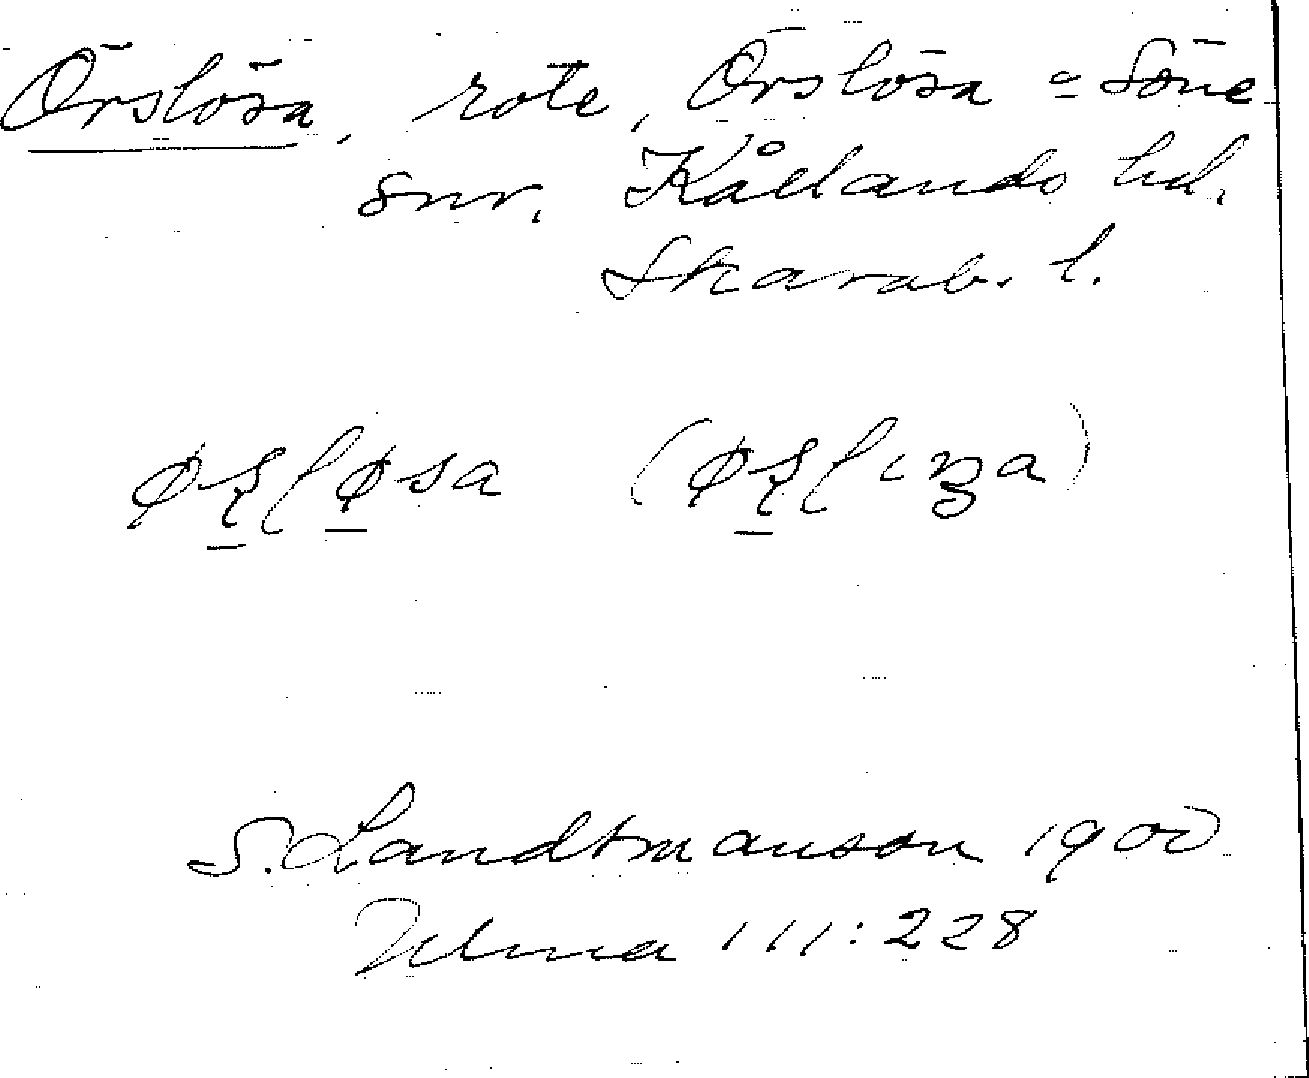 Örslösa, rote, Örslösa o Söne
snr. Kållands hd.
Skarab. l.
S. Landtmanson 1900
Ulma 111:228